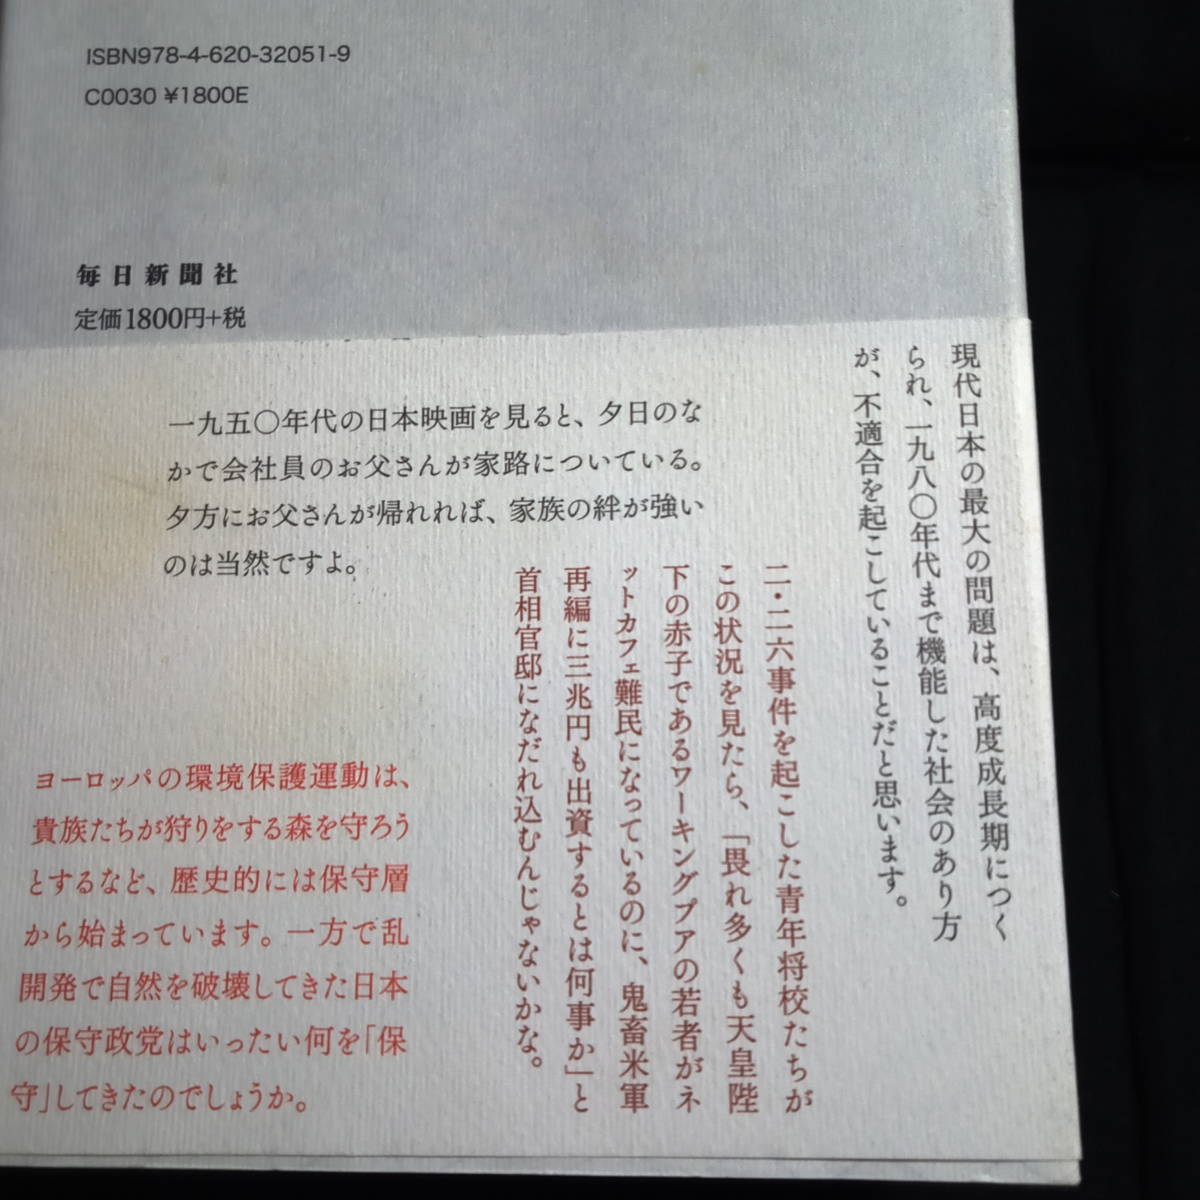 ISBN978-4-620-32051-9
C0030 ¥1800E
毎日新聞社
定価1800円+税
現代日本の最大の問題は、高度成長期につく
られ、一九八〇年代まで機能した社会のあり方
が、不適合を起こしていることだと思います。
一九五〇年代の日本映画を見ると、夕日のな
かで会社員のお父さんが家路についている。
夕方にお父さんが帰れれば、家族の絆が強い
のは当然ですよ。
二・二六事件を起こした青年将校たちが
この状況を見たら、「畏れ多くも天皇陛
下の赤子であるワーキングプアの若者がネ
ットカフェ難民になっているのに、鬼畜米軍
再編に三兆円も出資するとは何事か」と
首相官邸になだれ込むんじゃないかな。
ヨーロッパの環境保護運動は、
貴族たちが狩りをする森を守ろう
とするなど、歴史的には保守層
から始まっています。一方で乱
開発で自然を破壊してきた日本
の保守政党はいったい何を「保
守」してきたのでしょうか。